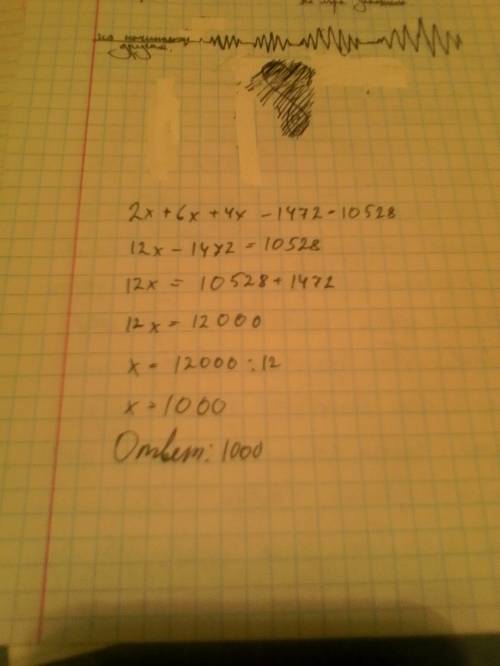 но начинает
другая.
2x + 6x + 4x - 1472 = 10528
12x - 1472 = 10528
12x = 10528 + 1472
12x = 12000
x = 12000 : 12
x = 1000
Ответ: 1000